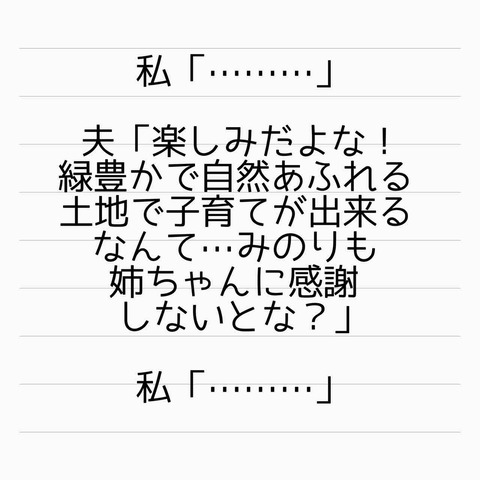 私「………」
夫「楽しみだよな！
緑豊かで自然あふれる
土地で子育てが出来る
なんて…みのりも
姉ちゃんに感謝
しないとな？」
私「………」